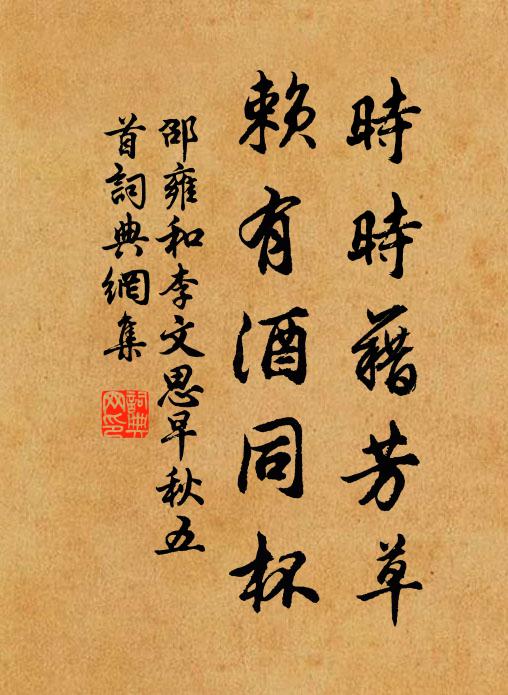 時時藉芳草
賴有酒同杯
邵雍和李文思早秋五
首詞典網集
詞典
网印